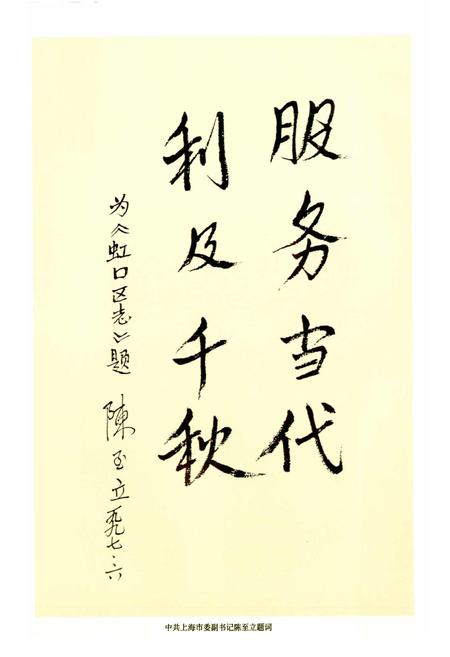 服务当代
利及千秋
为《虹口区志》题
陈至立一九九七·六
中共上海市委副书记陈至立题词